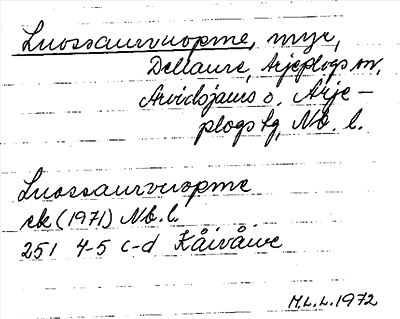 Luossaurvuopme, myr,
Dellaure, Arjeplogs sn,
Arvidsjaurs o. Arje-
plogs tg, Nb. l.
Luossaurvuopme
ek (1971) Nb. l.
251 4-5 c-d Kåivåive
M.L.L. 1972